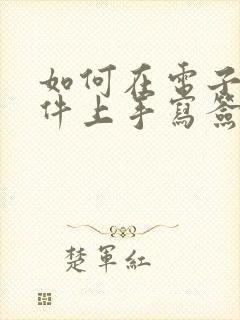 如何在電子
件上手寫簽
楚軍紅